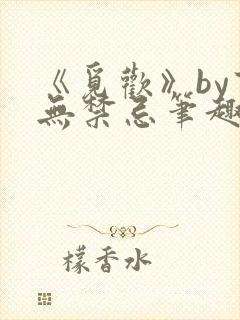 《覓歡》by
無禁忌筆趣
檬香水